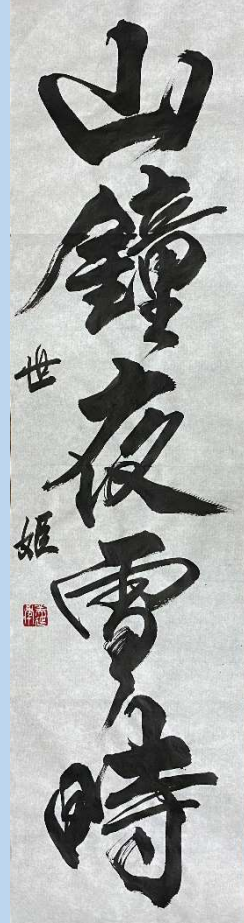 山鐘夜雪時
世姫